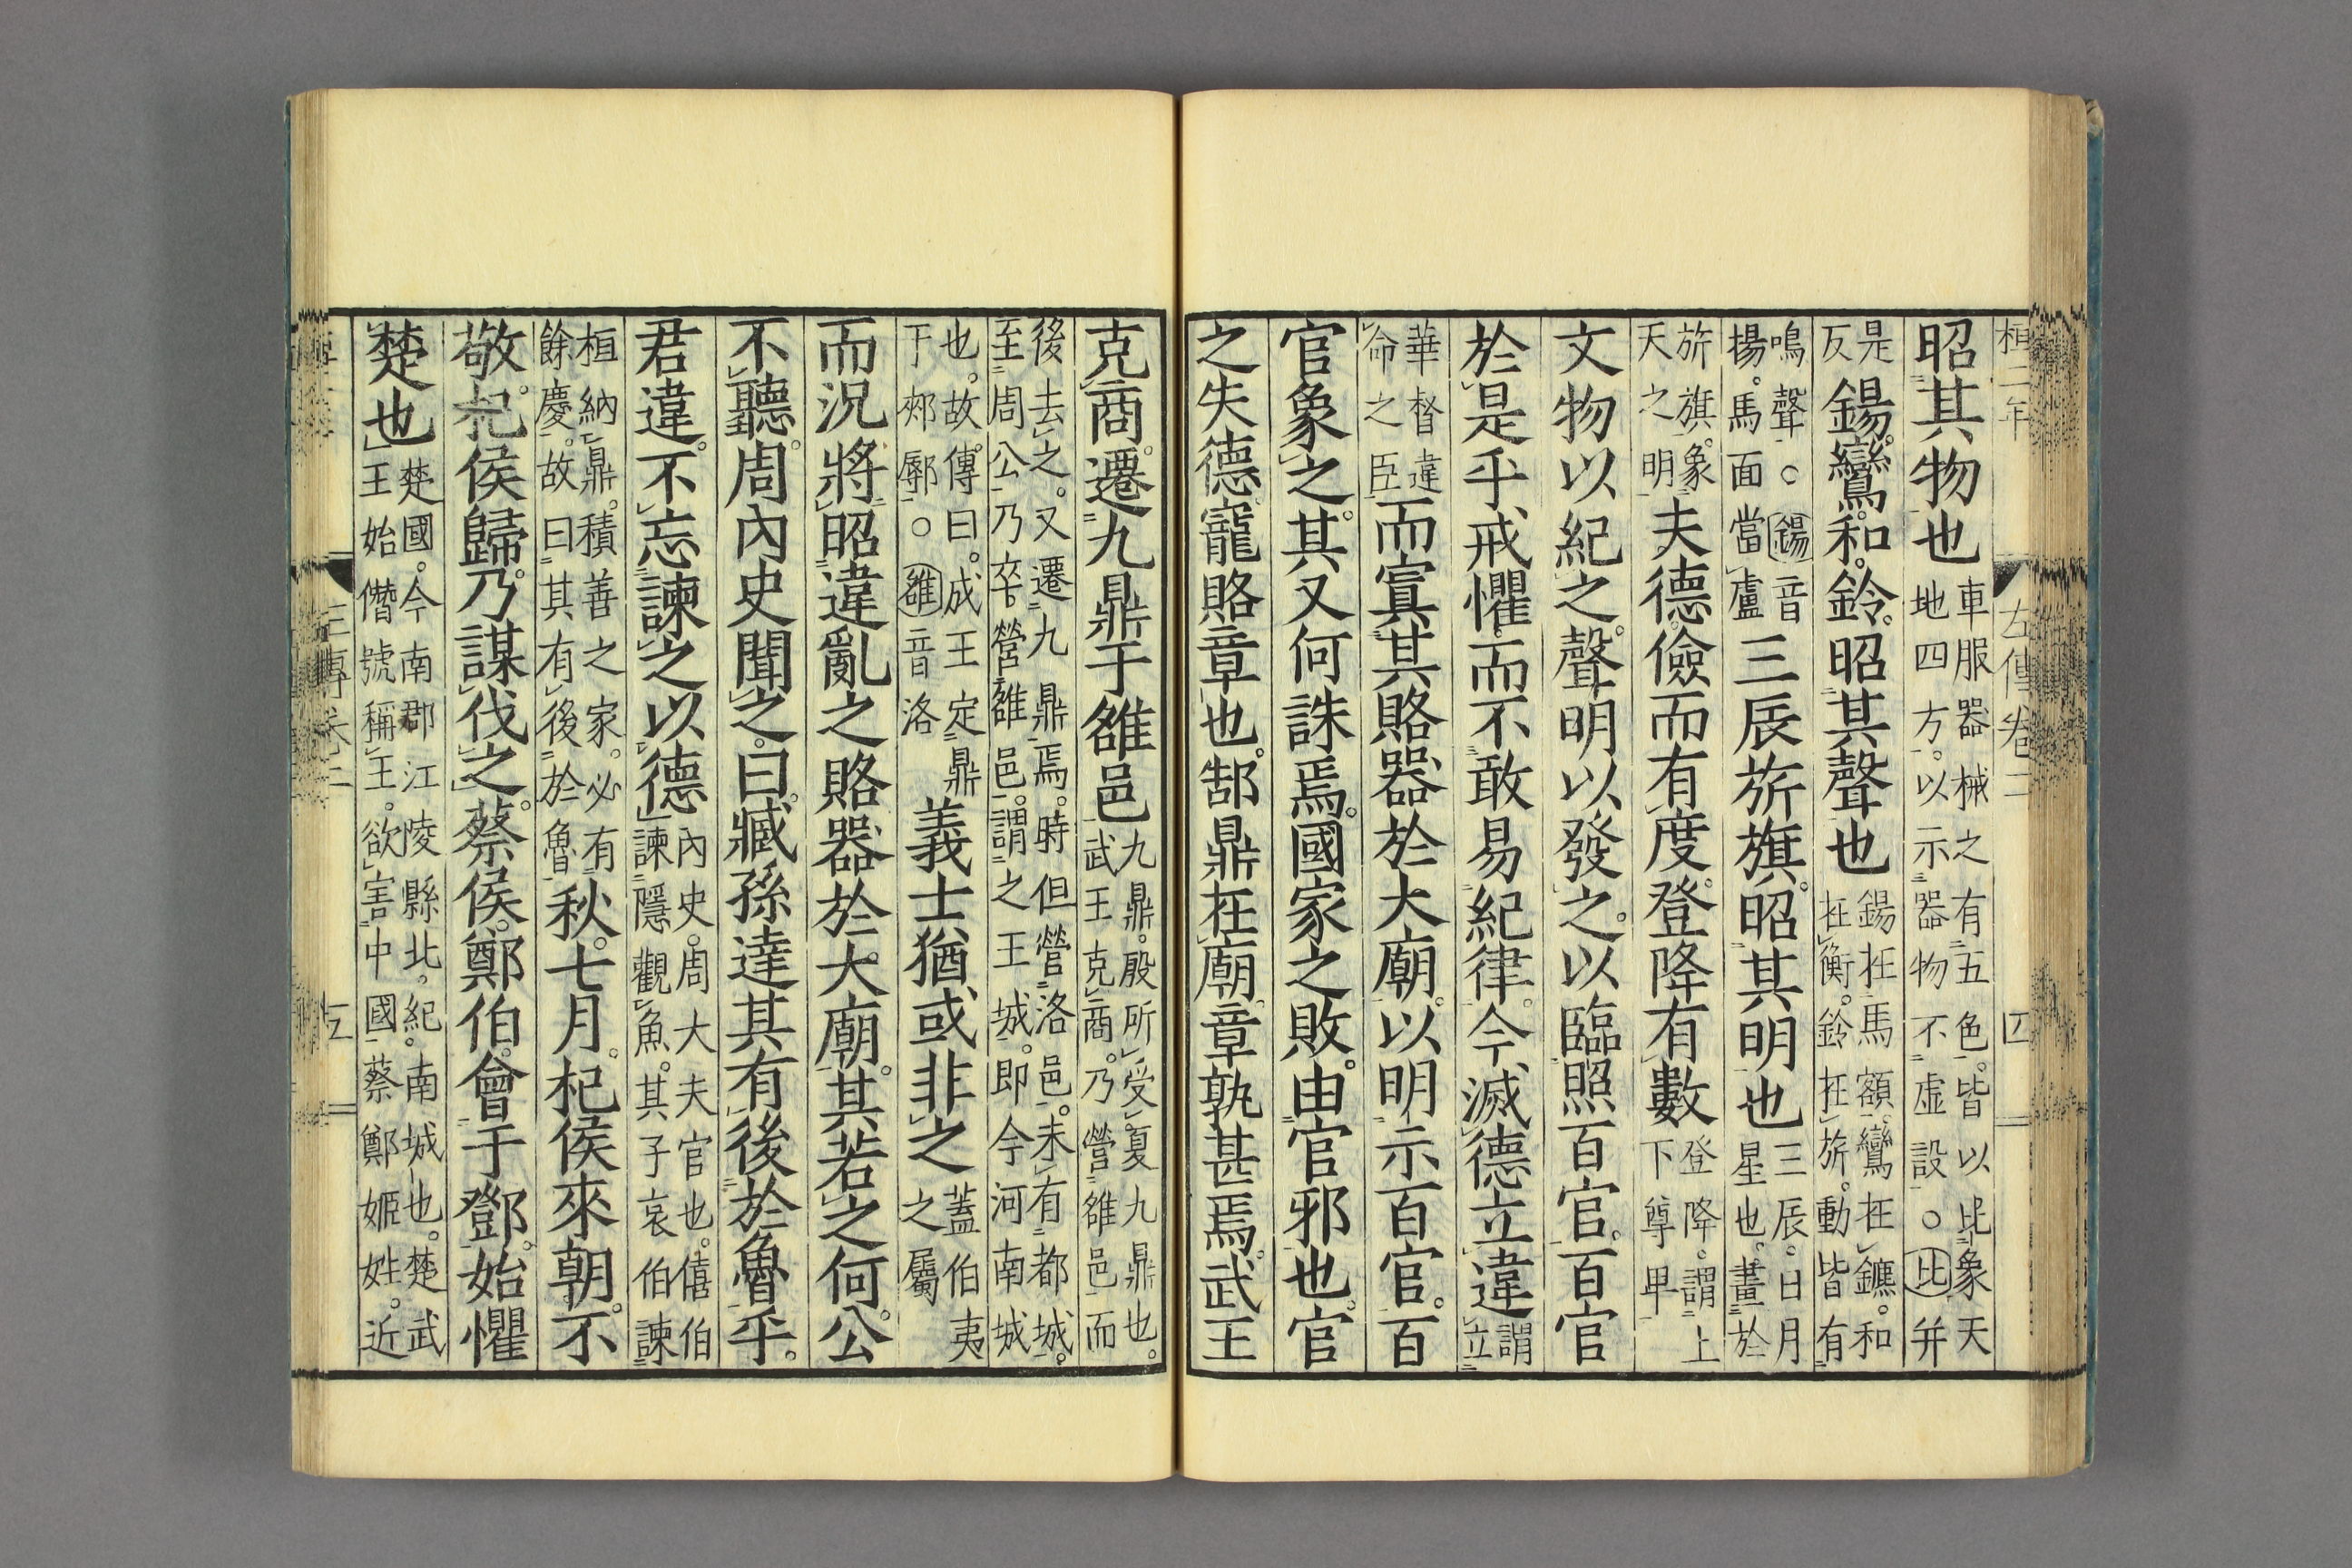 桓二年 左傳卷二 四
昭其物也車服器械之有五色皆以比象天地四方以示器物不虛設○比并
是反鍚鸞和鈴昭其聲也鍚在馬額鸞在鑣和在衡鈴在旂動皆有
鳴聲○鍚音揚馬面當盧三辰旂旗昭其明也三辰日月星也畫於
旂旗象天之明夫德儉而有度登降有數登降謂上下尊卑
文物以紀之聲明以發之以臨照百官百官
於是乎戒懼而不敢易紀律今滅德立違謂立
華督違命之臣而寘其賂器於大廟以明示百官百
官象之其又何誅焉國家之敗由官邪也官
之失德寵賂章也郜鼎在廟章孰甚焉武王
克商遷九鼎于雒邑九鼎殷所受夏九鼎也武王克商乃營雒邑而
後去之又遷九鼎焉時但營洛邑未有都城至周公乃卒營雒邑謂之王城即今河南城
也故傳曰成王定鼎于郟鄏○雒音洛義士猶或非之蓋伯夷之屬
而況將昭違亂之賂器於大廟其若之何公
不聽周內史聞之曰臧孫達其有後於魯乎
君違不忘諫之以德內史周大夫官也僖伯諫隱觀魚其子哀伯諫
桓納鼎積善之家必有餘慶故曰其有後於魯秋七月杞侯來朝不
敬杞侯歸乃謀伐之蔡侯鄭伯會于鄧始懼
楚也楚國今南郡江陵縣北紀南城也楚武王始僭號稱王欲害中國蔡鄭姬姓近